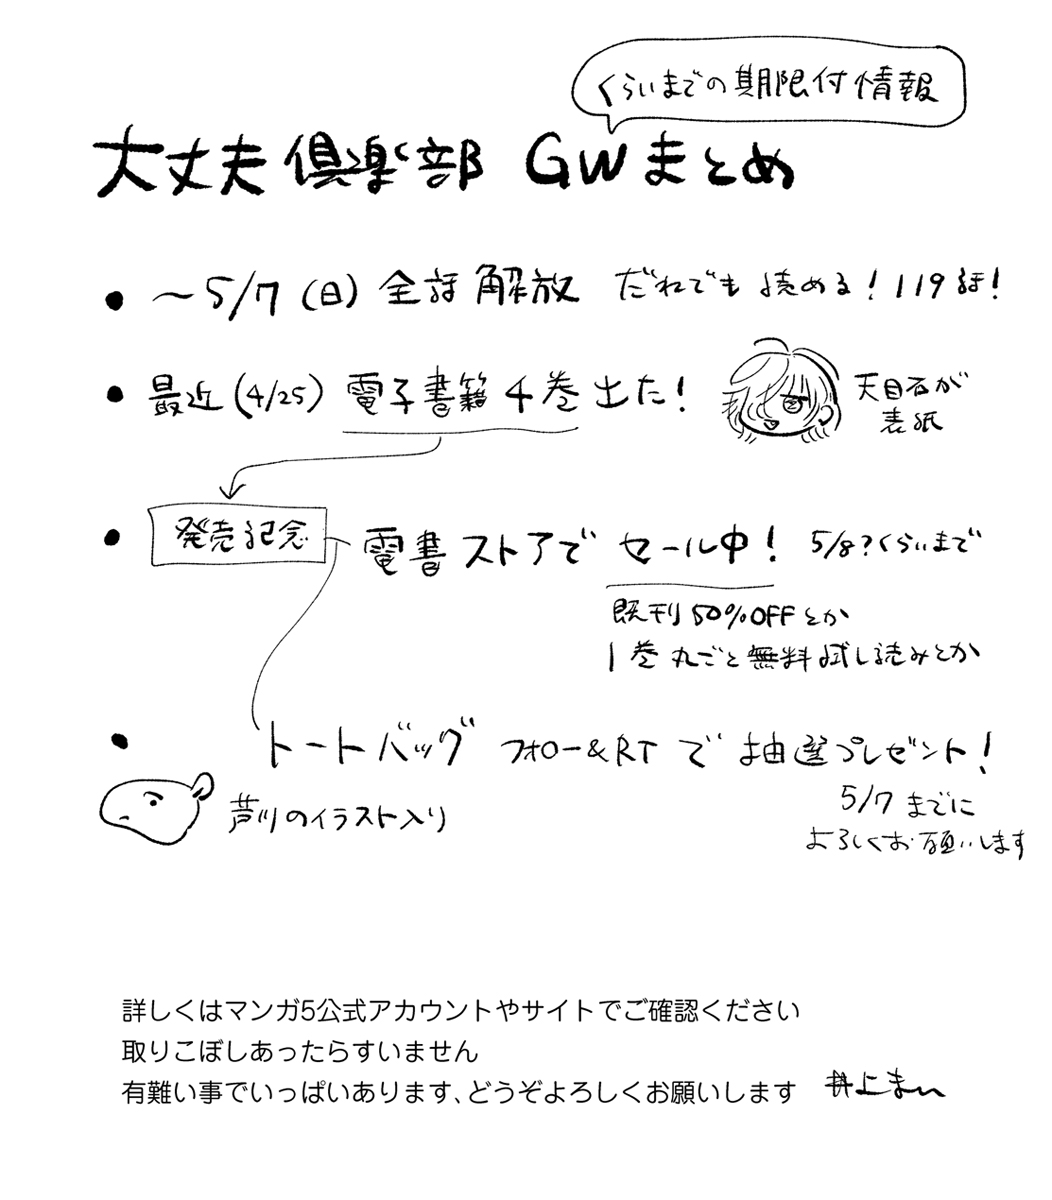 くらいまでの期限付情報
大丈夫倶楽部 GWまとめ
● 〜5/7(日) 全話解放 だれでも読める！119話！
● 最近(4/25) 電子書籍4巻出た！
天目石が
表紙
● 発売記念 電書ストアでセール中！ 5/8?くらいまで
既刊50%OFFとか
1巻丸ごと無料試し読みとか
● トートバッグ フォロー&RTで抽選プレゼント！
芦川のイラスト入り
5/7までに
よろしくお願いします
詳しくはマンガ5公式アカウントやサイトでご確認ください
取りこぼしあったらすいません
有難い事でいっぱいあります、どうぞよろしくお願いします
井上まい